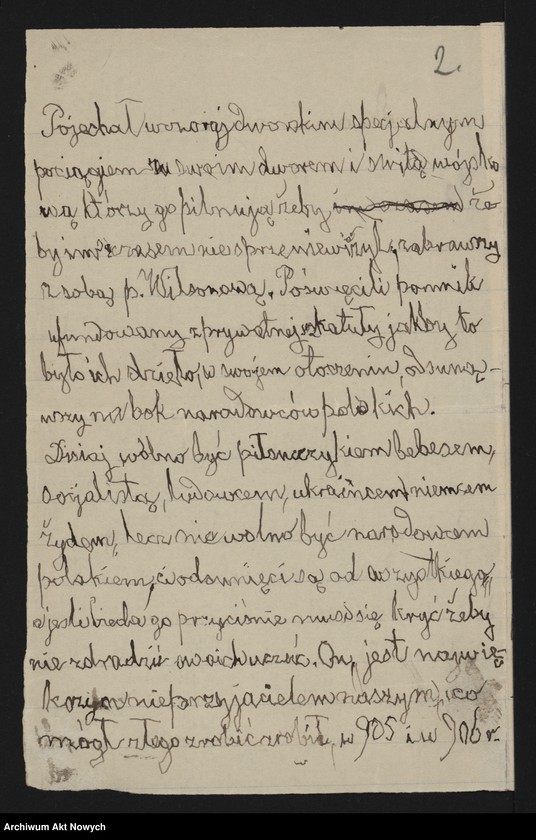 2.
Pojechał wczoraj dworskim specjalnym
pociągiem ze swoim dworem i świtą wojsko
wą którzy go pilnują żeby że
by im czasem nie sprzeniewierzył, zabrawszy
z sobą p. Wilsonową. Poświęcili pomnik
ufundowany z prywatnej szkatuły jakby to
było ich dzieło, w swojem otoczeniu, odsuną-
wszy na bok narodowców polskich.
Dzisiaj wolno być piłsudczykiem bebeszm,
socjalistą, ludowcem, ukraińcem niemcem
żydem, lecz nie wolno być narodowcem
polskiem, ci odsunięci są od wszystkiego,
a jeśli bieda go przyciśnie musi się kryć żeby
nie zdradzić swoich uczuć. On jest najwię-
kszym nieprzyjacielem naszym, co
mógł złego zrobić zrobił, w 905 i w 906 r.
Archiwum Akt Nowych